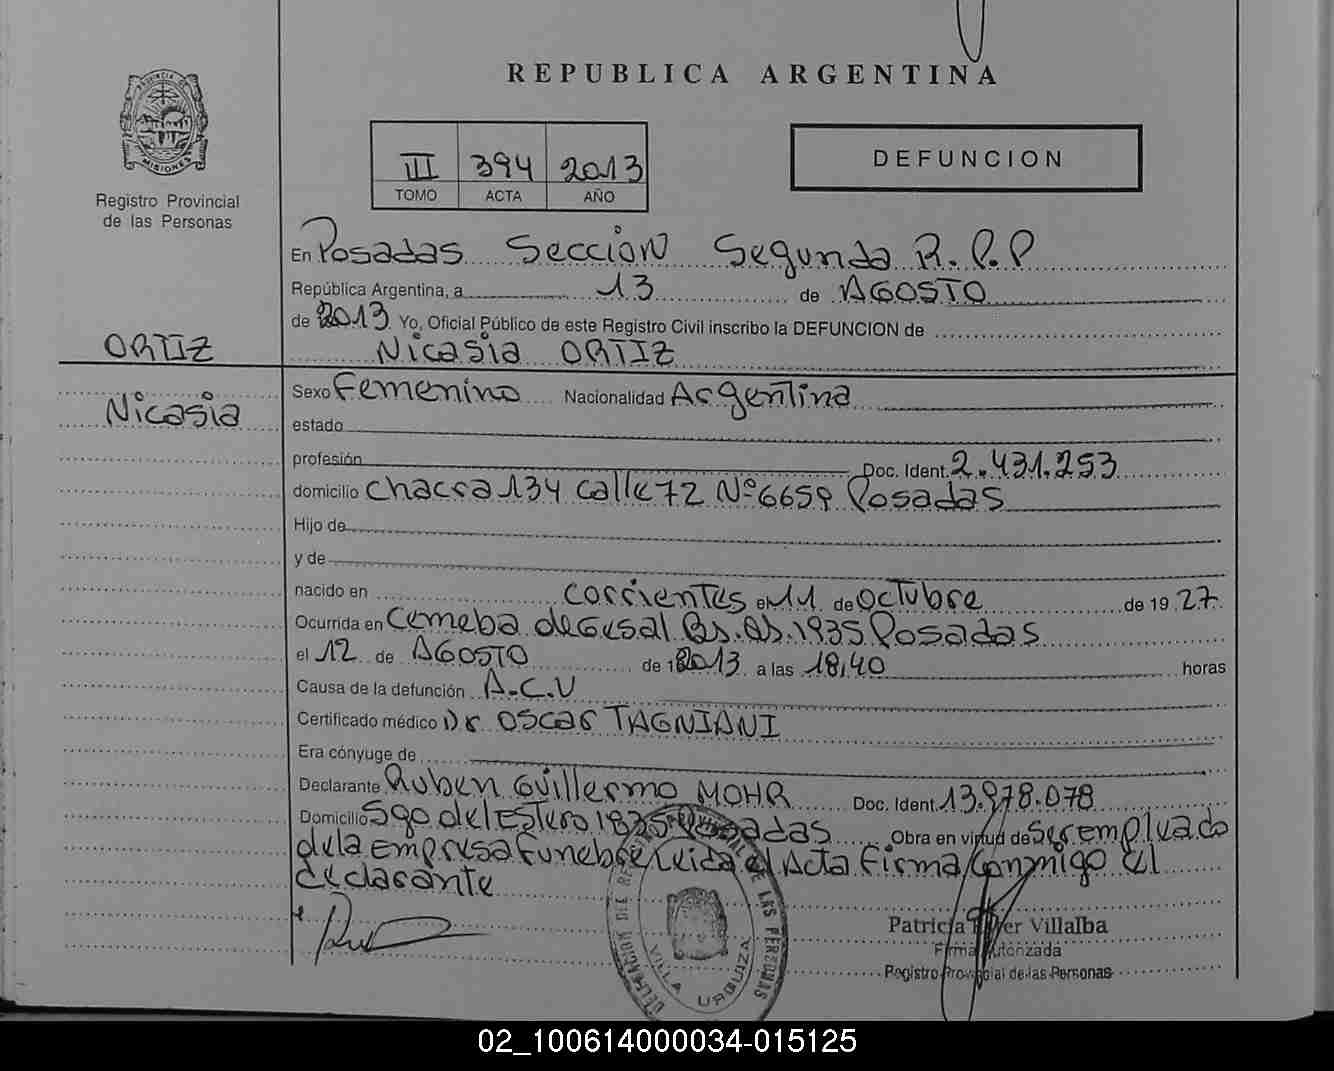 REPUBLICA ARGENTINA
PROVINCIA DE
MISIONES
Registro Provincial
de las Personas
III 394 2013
TOMO ACTA AÑO
DEFUNCION
En Posadas Seccion Segunda R.P.P
República Argentina, a 13 de AGOSTO
de 2013 Yo, Oficial Público de este Registro Civil inscribo la DEFUNCION de
Nicasia ORTIZ
ORTIZ
Nicasia
Sexo Femenino Nacionalidad Argentina
estado
profesión Doc. Ident. 2.431.253
domicilio chacra 134 calle 72 Nº 6659 Posadas
Hijo de
y de
nacido en corrientes el 11 de octubre de 19 27
Ocurrida en Cemeba Bs.As. 1935 Posadas
el 12 de AGOSTO de 2013 a las 18,40 horas
Causa de la defunción A.C.V
Certificado médico Dr OSCAR TAGNIANI
Era cónyuge de
Declarante Ruben Guillermo MOHR Doc. Ident. 13.878.078
Domicilio Sgo del Estero 1835 Posadas Obra en virtud de Ser empleado
de la Empresa Funebre Leida el Acta Firma Conmigo el
declarante
Patricia Villalba
Firma Autorizada
Registro Provincial de las Personas
DELEGACION DEL REGISTRO PROVINCIAL DE LAS PERSONAS
VILLA URQUIZA
02_100614000034-015125